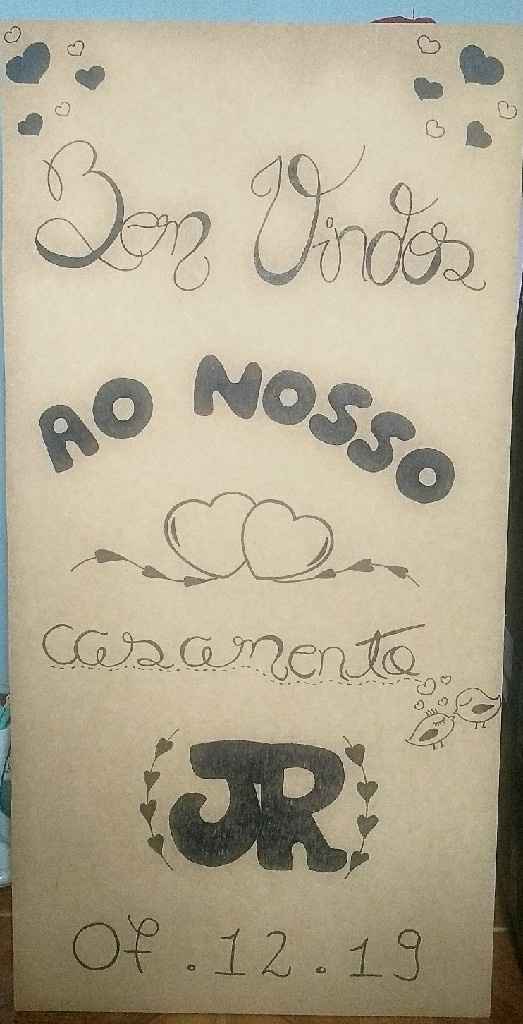 Bem Vindos
AO NOSSO
casamento
JR
07.12.19